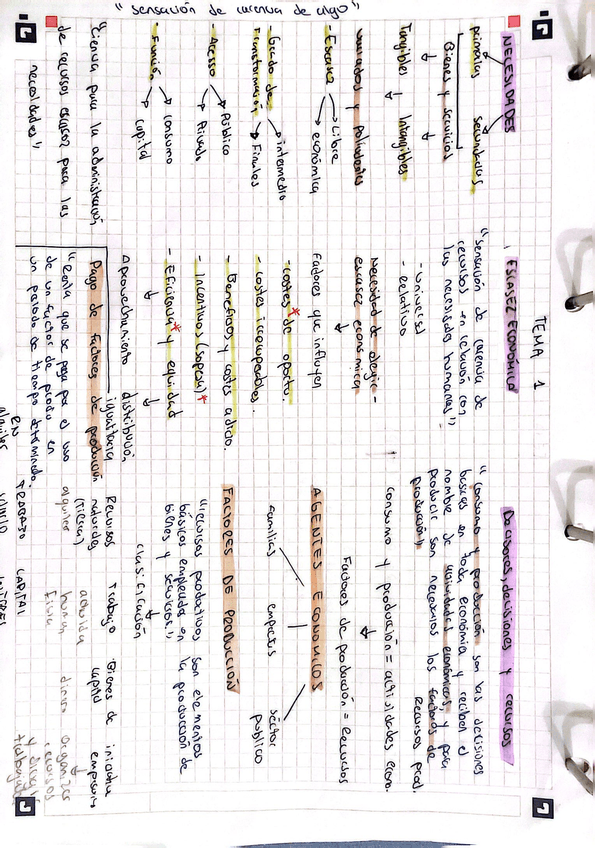 "sensación de carencia de algo"
TEMA 1
NECESIDADES
primarias secundarias
Bienes y servicios
Tangibles Intangibles
- Escasez
Libre
económica
- Grado de
Transformación
intermedio
Finales
- Acceso
Público
Privado
- Función
consumo
capital
"Ciencia para la administración
de recursos escasos para las
necesidades"
ESCASEZ ECONÓMICA
"sensación de carencia de
recursos en relación con
las necesidades humanas".
- universal
- relativo
Necesidad de elegir -
escasez económica
Factores que influyen
- costes* de oportu.
- costes irrecuperables.
- Beneficios y costes adicio.
- Incentivos (sopesar)*
- Eficiencia* y equidad
Aprovechamiento distribución
igualitaria
Pago de Factores de producción
"Renta que se paga por el uso
de un factor de produ en
un periodo de tiempo determinado.
Decisores, decisiones y recursos
"consumo y producción son las decisiones
básicas en toda económica y reciben el
nombre de actividades económicas y para
producir son necesarios los factores de
producción"
Recursos prod.
consumo y producción = actividades econo.
Factores de producción = Recursos
AGENTES ECONOMICOS
Familias empresas séctor
público
FACTORES DE PRODUCCIÓN
"recursos productivos son elementos
básicos empleados en la producción de
bienes y servicios."
clasificación
Recursos
naturales
(Tierra)
alquiler
Trabajo
Bienes de
capital
iniciativa
empresario
organizar
recursos
TRABAJO CAPITAL